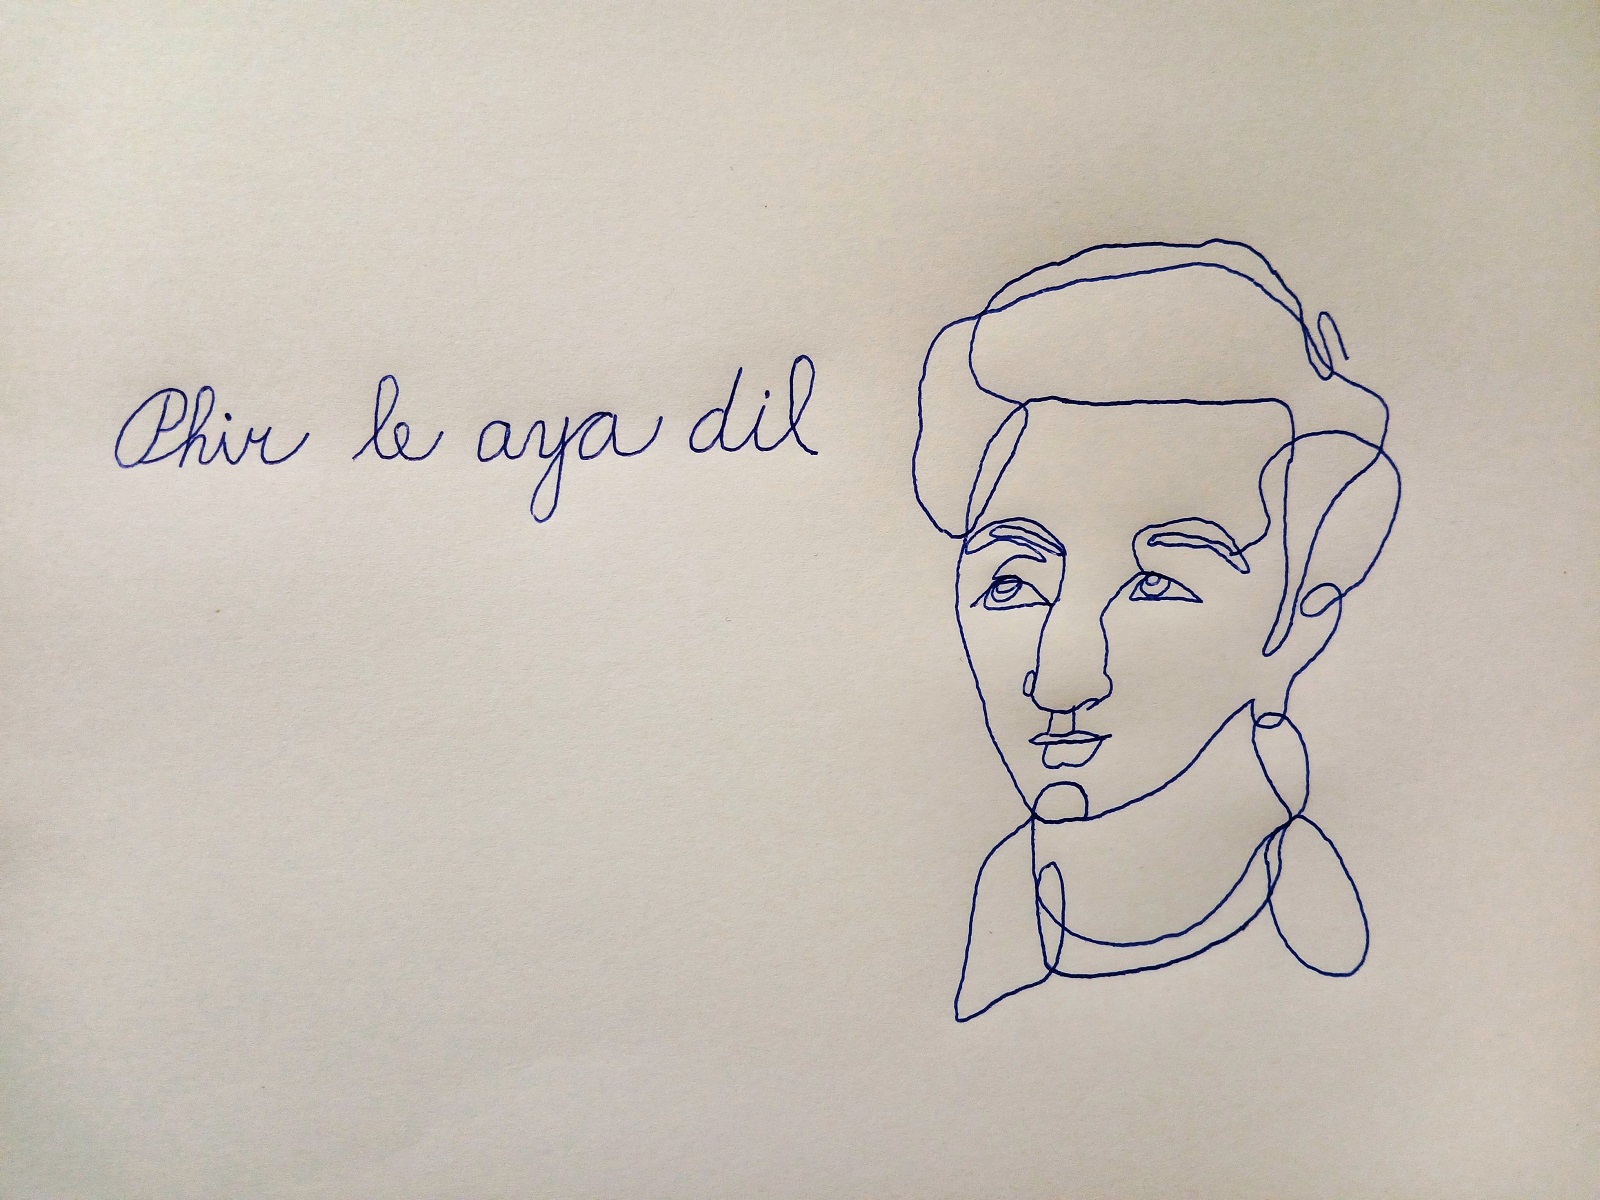 Phir le aya dil